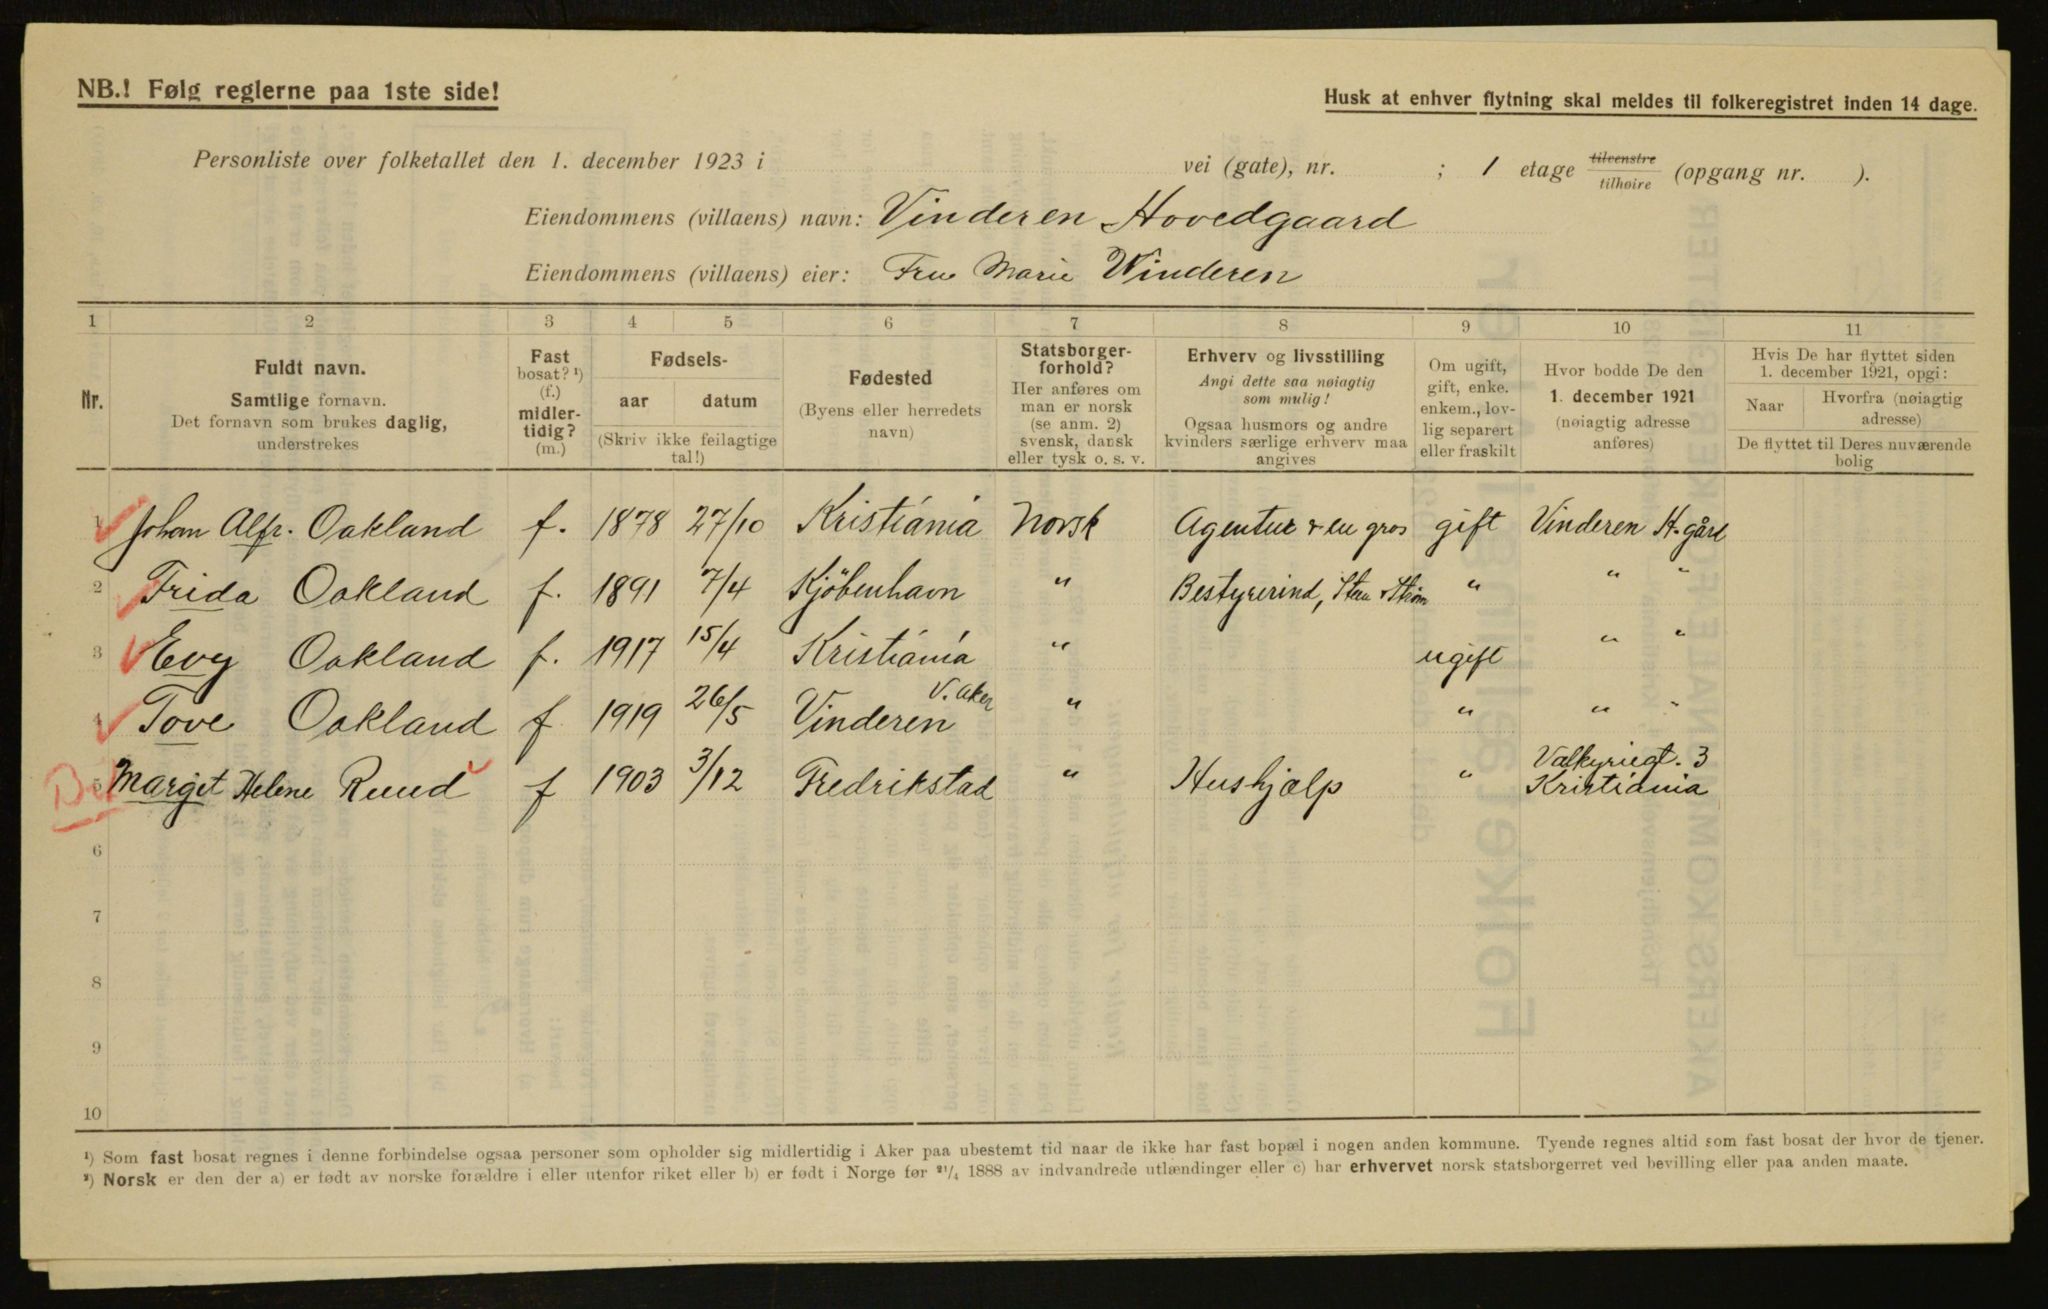 NB.! Følg reglerne paa 1ste side!
Husk at enhver flytning skal meldes til folkeregistret inden 14 dage.
Personliste over folketallet den 1. december 1923 i vei (gate), nr. ; 1 etage tilvenstre tilhøire (opgang nr. ).
Eiendommens (villaens) navn: Vinderen Hovedgaard
Eiendommens (villaens) eier: Fru Marie Winderen
1 2 3 4 5 6 7 8 9 10 11
Nr.
Fuldt navn.
Samtlige fornavn.
Det fornavn som brukes daglig,
understrekes
Fast
bosat? ¹)
(f.)
midler-
tidig?
(m.)
Fødsels-
aar datum
(Skriv ikke feilagtige
tal!)
Fødested
(Byens eller herredets
navn)
Statsborger-
forhold?
Her anføres om
man er norsk
(se anm. 2)
svensk, dansk
eller tysk o. s. v.
Erhverv og livsstilling
Angi dette saa nøiagtig
som mulig!
Ogsaa husmors og andre
kvinders særlige erhverv maa
angives
Om ugift,
gift, enke.
enkem., lov-
lig separert
eller fraskilt
Hvor bodde De den
1. december 1921
(nøiagtig adresse
anføres)
Hvis De har flyttet siden
1. december 1921, opgi:
Naar Hvorfra (nøiagtig
adresse)
De flyttet til Deres nuværende
bolig
1 Johan Alfr. Oakland f. 1878 27/10 Kristiánia Norsk Agentur & en gros gift Vinderen H-gård
2 Frida Oakland f. 1891 7/4 Kjöbenhavn " Bestyrerind, Steen & Strøm " " "
3 Evy Oakland f. 1917 15/4 Kristiánia " ugift " "
4 Tove Oakland f 1919 26/5 Vinderen V. Aker " " " "
5 Margit Helene Ruud f 1903 3/12 Fredrikstad " Hushjælp " Valkyriegt. 3
Kristiánia
6
7
8
9
10
¹) Som fast bosat regnes i denne forbindelse ogsaa personer som opholder sig midlertidig i Aker paa ubestemt tid naar de ikke har fast bopæl i nogen anden kommune. Tyende regnes altid som fast bosat der hvor de tjener.
²) Norsk er den der a) er født av norske forældre i eller utenfor riket eller b) er født i Norge før ²¹/₄ 1888 av indvandrede utlændinger eller c) har erhvervet norsk statsborgerret ved bevilling eller paa anden maate.